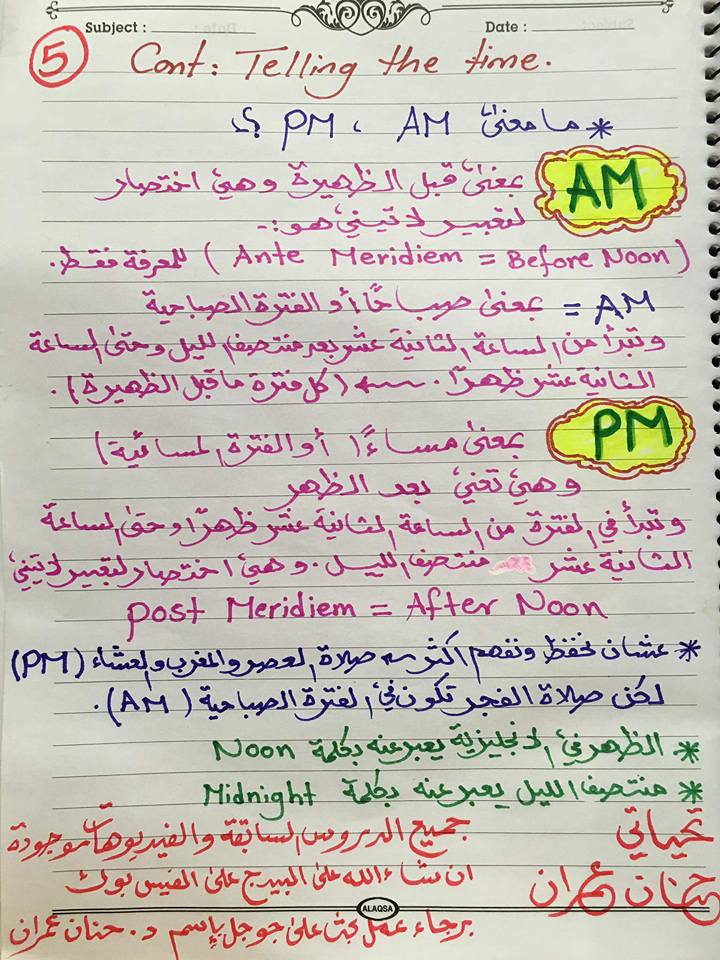 Subject :
Date :
5
Cont: Telling the time.
* ما معنى AM ، PM ؟؟
AM
بمعنى قبل الظهيرة وهي اختصار
لتعبير لاتيني هو:-
( Ante Meridiem = Before Noon ) للمعرفة فقط.
AM = بمعنى صباحًا أو الفترة الصباحية
وتبدأ من الساعة الثانية عشر بعد منتصف الليل وحتى الساعة
الثانية عشر ظهرًا. (كل فترة ما قبل الظهيرة).
PM
بمعنى مساءًا (أو الفترة المسائية)
وهي تعني بعد الظهر
وتبدأ في الفترة من الساعة الثانية عشر ظهرًا وحتى الساعة
الثانية عشر منتصف الليل. وهي اختصار لتعبير لاتيني
Post Meridiem = After Noon
* عشان نحفظ ونفهم أكثر صلاة العصر والمغرب والعشاء (PM)
لكن صلاة الفجر تكون في الفترة الصباحية (AM).
*. الظهر في الانجليزية يعبر عنه بكلمة Noon
* منتصف الليل يعبر عنه بكلمة Midnight
تحياتي
حنان عمران
جميع الدروس السابقة والفيديوهات موجودة
ان شاء الله على البيدج على الفيس بوك
ALAQSA
برجاء عمل بحث على جوجل بإسم د. حنان عمران